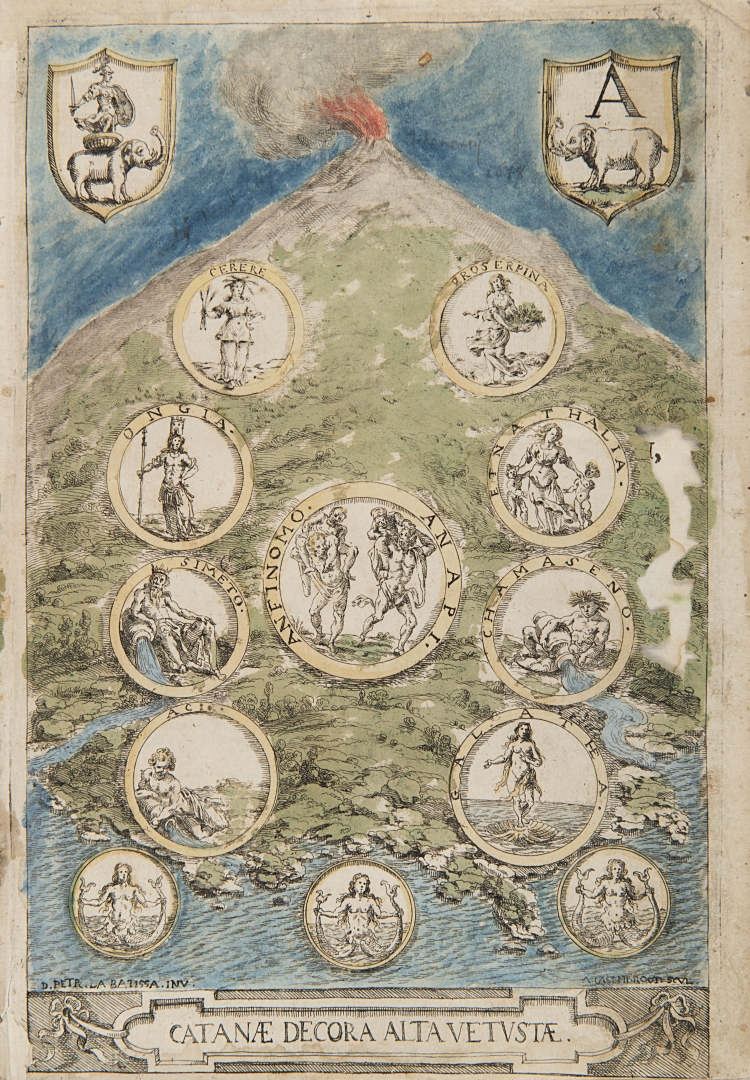 A
CERERE
PROSERPINA
ONGIA.
ETNA THALIA.
ANFINOMO.
ANAPI.
SIMETO.
CHAMASENO.
ACI
GALATHEA.
D. PETR. LA BATISSA. INV.
SCUL
CATANÆ DECORA ALTA VETVSTÆ.